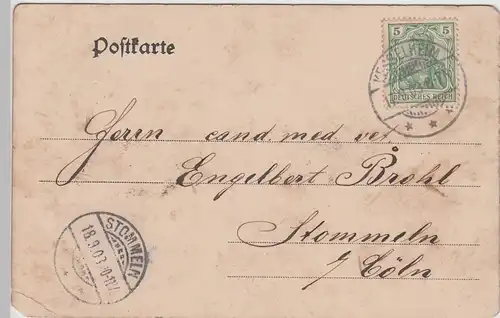 Postkarte
5 5
DEUTSCHES REICH
Herrn cand. med. vet.
Engelbert Brohl
Stommeln
b/ Cöln
STOMMELN
18.9.03